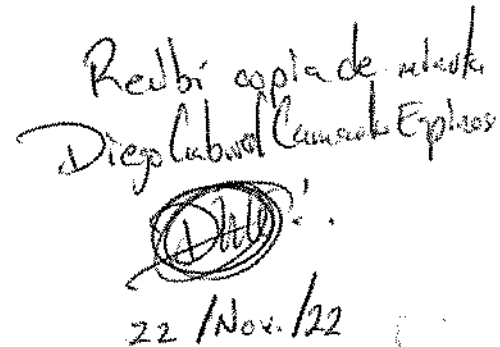 Recibí copia de
Diego Gabriel Camacho Espinosa
22 /Nov./22